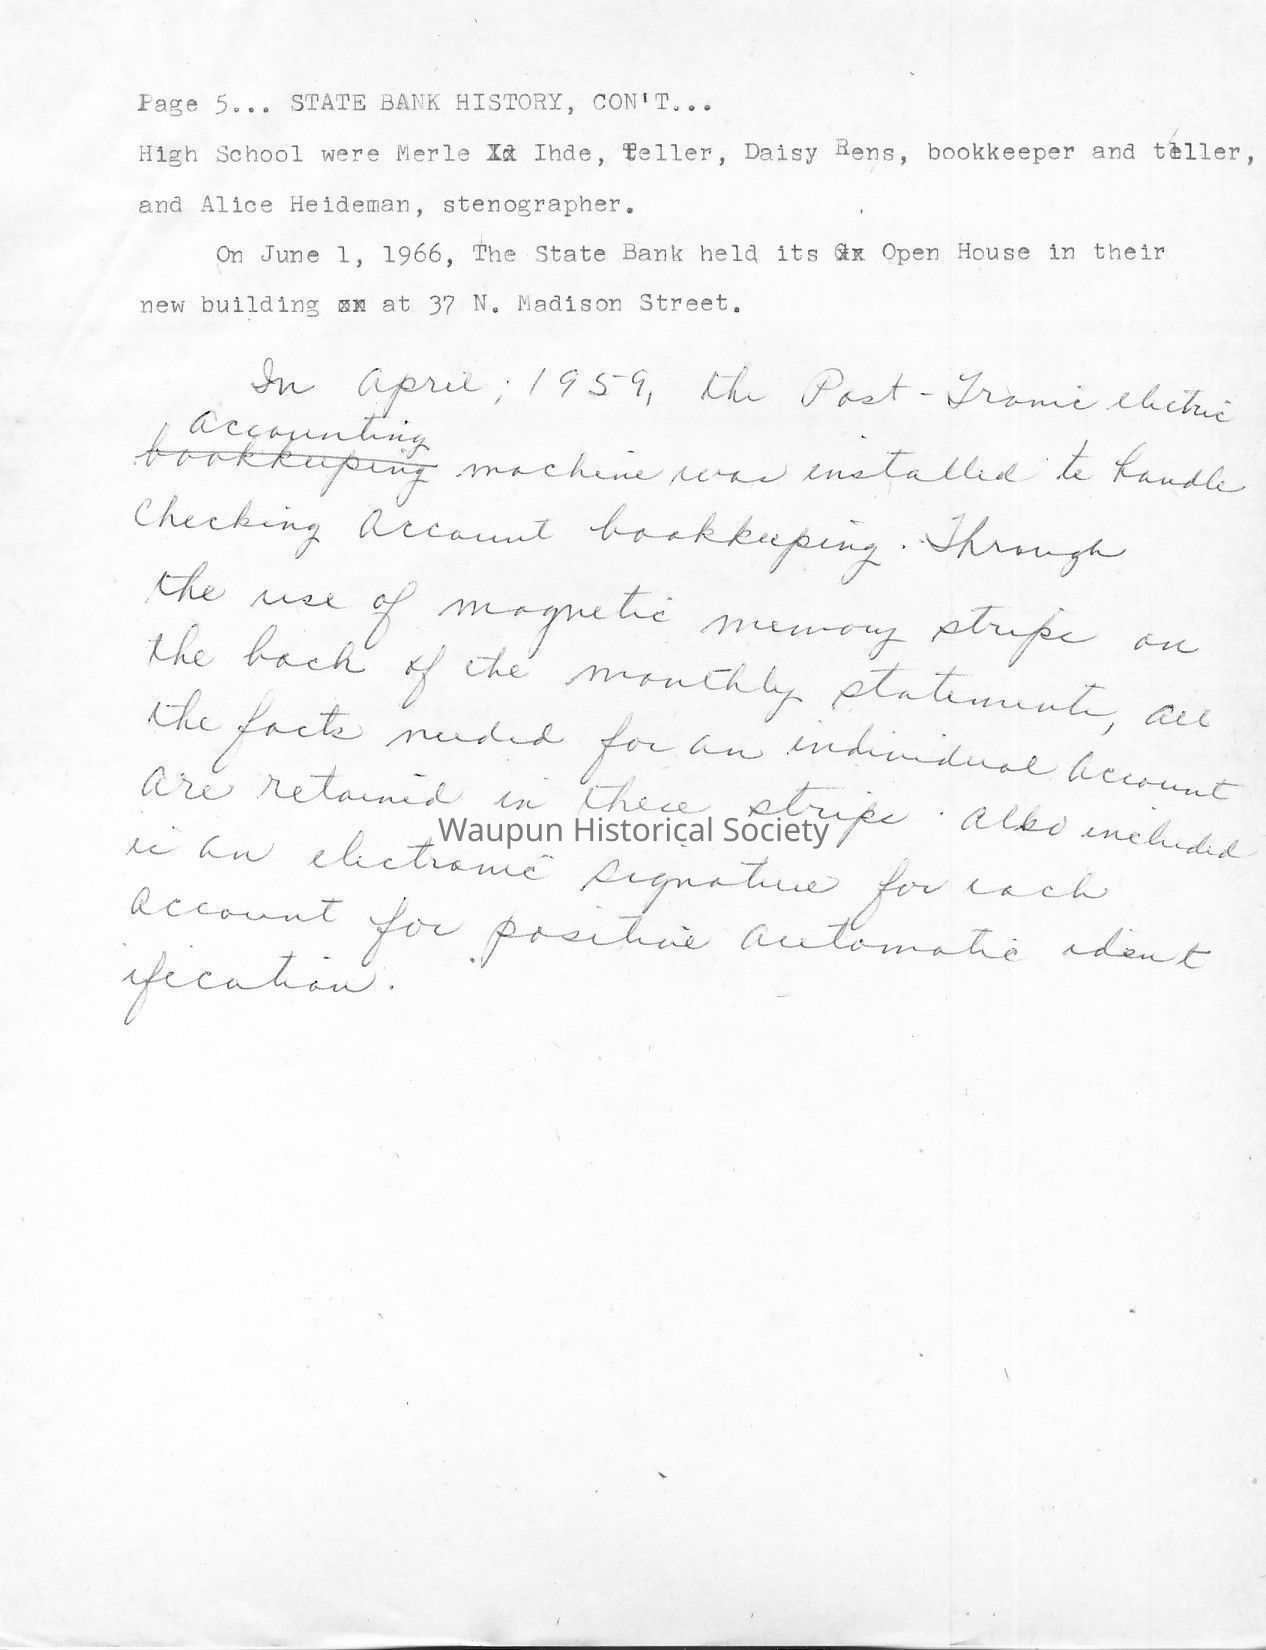 Page 5... STATE BANK HISTORY, CON'T...
High School were Merle Ihde, Teller, Daisy Rens, bookkeeper and teller,
and Alice Heideman, stenographer.
On June 1, 1966, The State Bank held its Open House in their
new building at 37 N. Madison Street.
In April, 1959, the Post-Tronic electric
accounting
bookkeeping machine was installed to handle
Checking Account bookkeeping. Through
the use of magnetic memory strips on
the back of the monthly statements, all
the facts needed for an individual account
are retained in these strips. Also included
Waupun Historical Society
is an electronic signature for each
account for positive automatic ident
ification.